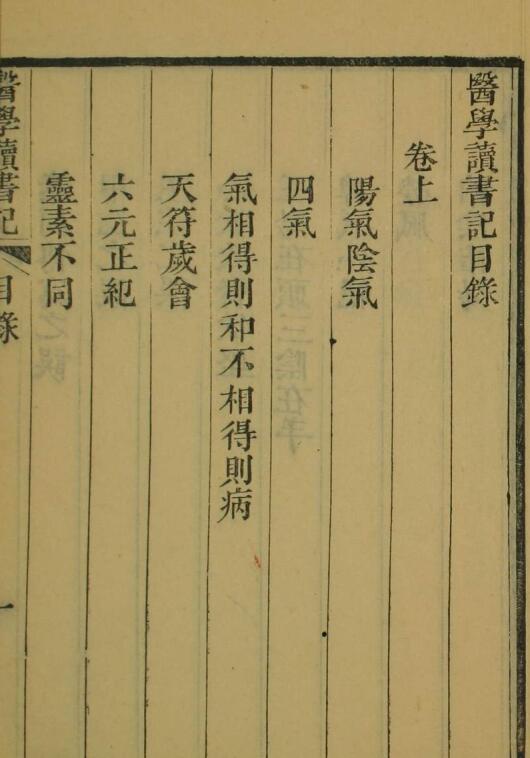 醫學讀書記目錄
卷上
陽氣陰氣
四氣
氣相得則和不相得則病
天符歲會
六元正紀
靈素不同
醫學讀書記 目錄 一